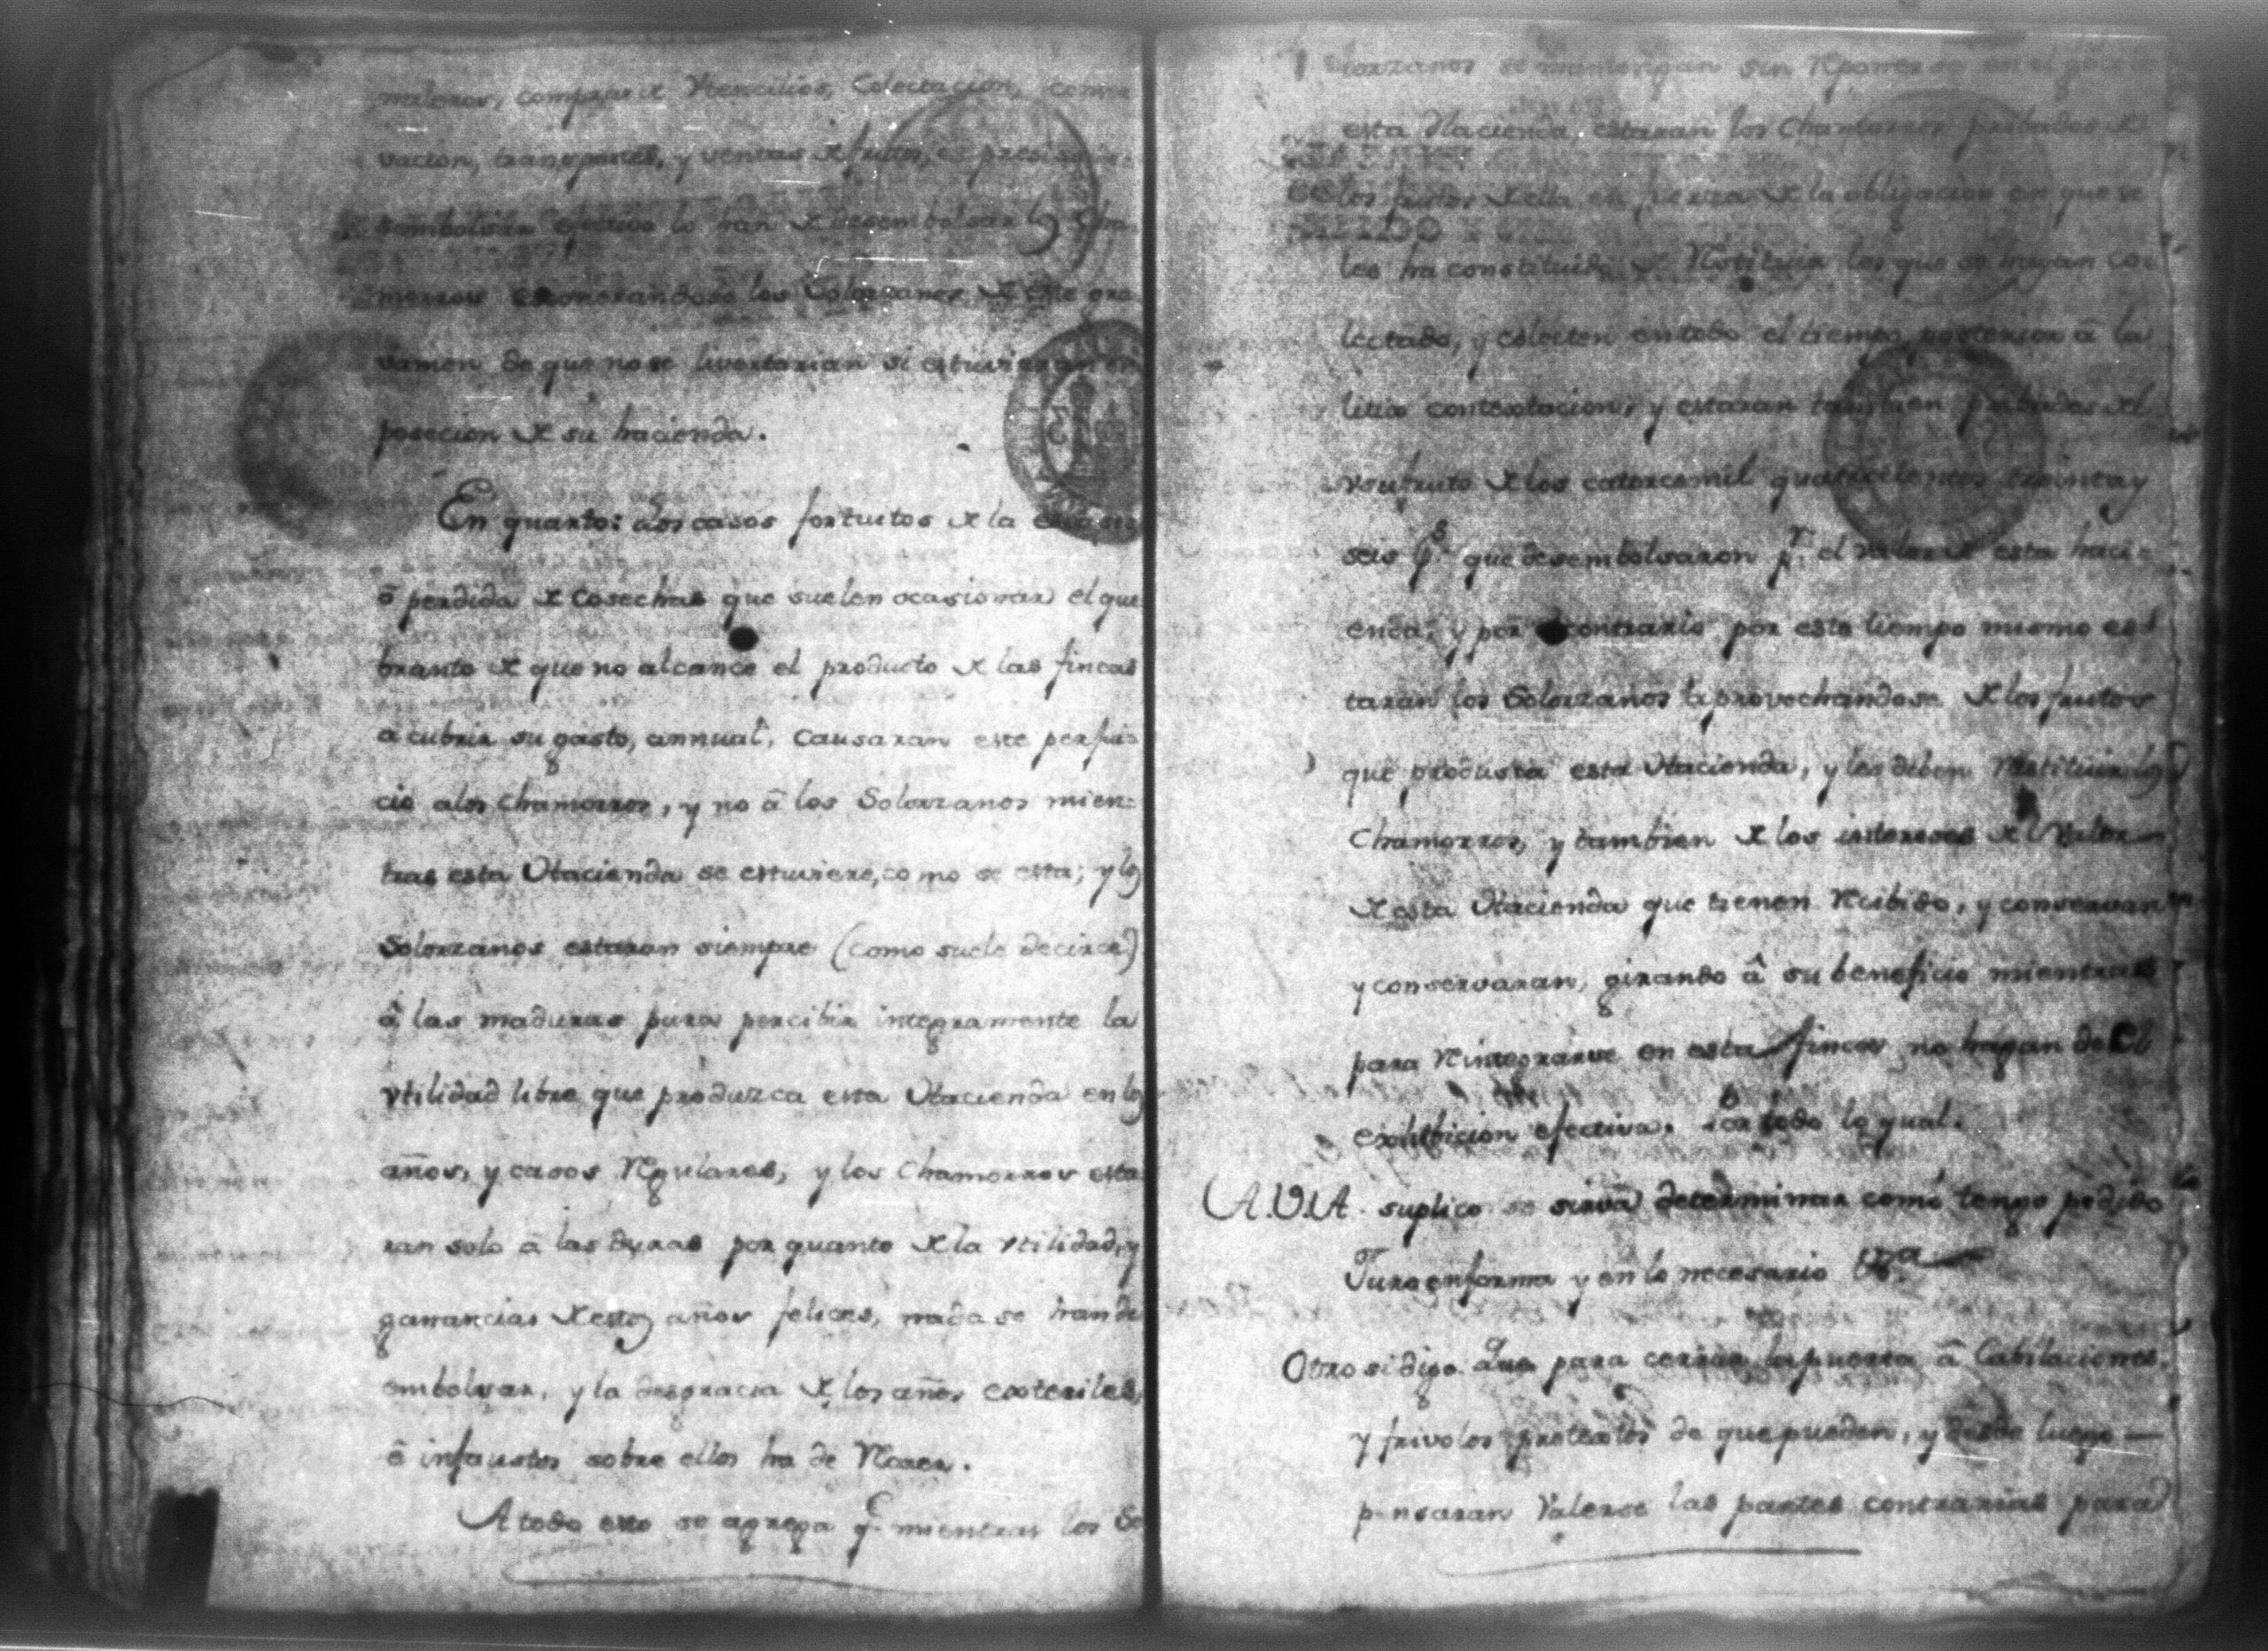 compras de Vtencilios, Colectacion,
vacion, transportes, y ventas de frutos,
lo han de desembolsar los Cha-
morros los Solorzanos de este gra-
vamen de que no se livertarian si estuvieran en
posecion de su hacienda.
En quarto: Los casos fortuitos de la
ō perdida de Cosechas que suelen ocasionar el que
branto de que no alcance el producto de las fincas
a cubrir su gasto, annual, Causaran este perjui=
cio alos Chamorros, y no ā los Solorzanos mien=
tras esta Hacienda se estuviere, como se esta; y los
Solorzanos estaran siempre (como suele decirce)
â las maduras para percibir integramente la
vtilidad libre que produzca esta Hacienda en los
años, y casos Regulares, y los Chamorros esta
ran solo ā las duras por quanto de la vtilidad, y
ganancias de estos años felices, nada se han de
embolsar, y la desgracia de los años esteriles,
ê infaustos sobre ellos ha de Recaer.
A todo esto se agrega q.e mientras los So
lorzanos se mantengan sin Reponerse en el goce de
esta Hacienda, estaran los Chamorros pribados de
los frutos de ella en fuerza de la obligacion en que se
les ha constituido de Restituir los que se hayan co-
lectado, y colecten en todo el tiempo posterior â la
litis contextacion, y estaran tambien pribados del
vsufruto de los catorcemil quatrocientos treinta y
seis p.s que desembolsaron p.r el valor de esta haci=
enda; y por contrario por este tiempo mismo es-
taran los Solorzanos aprovechandose de los frutos
que produsca esta Hacienda, y les deben Restituir los
Chamorros, y tambien de los intereses del Valor
de esta Hacienda que tienen Recibido, y conservan
y conservaran, girando â su beneficio mientras
para Reintegrarse en esta finca no hagan de el
exhibicion efectiva. Por todo lo qual.
A.V.A. suplico se sirva determinar como tengo pedido
Juro en forma y en lo necesario V.a
Otro si digo. Que para cerrar la puerta â Cabilaciones,
y frivolos pretextos de que pueden, y desde luego
pensaran Valerce las partes contrarias para